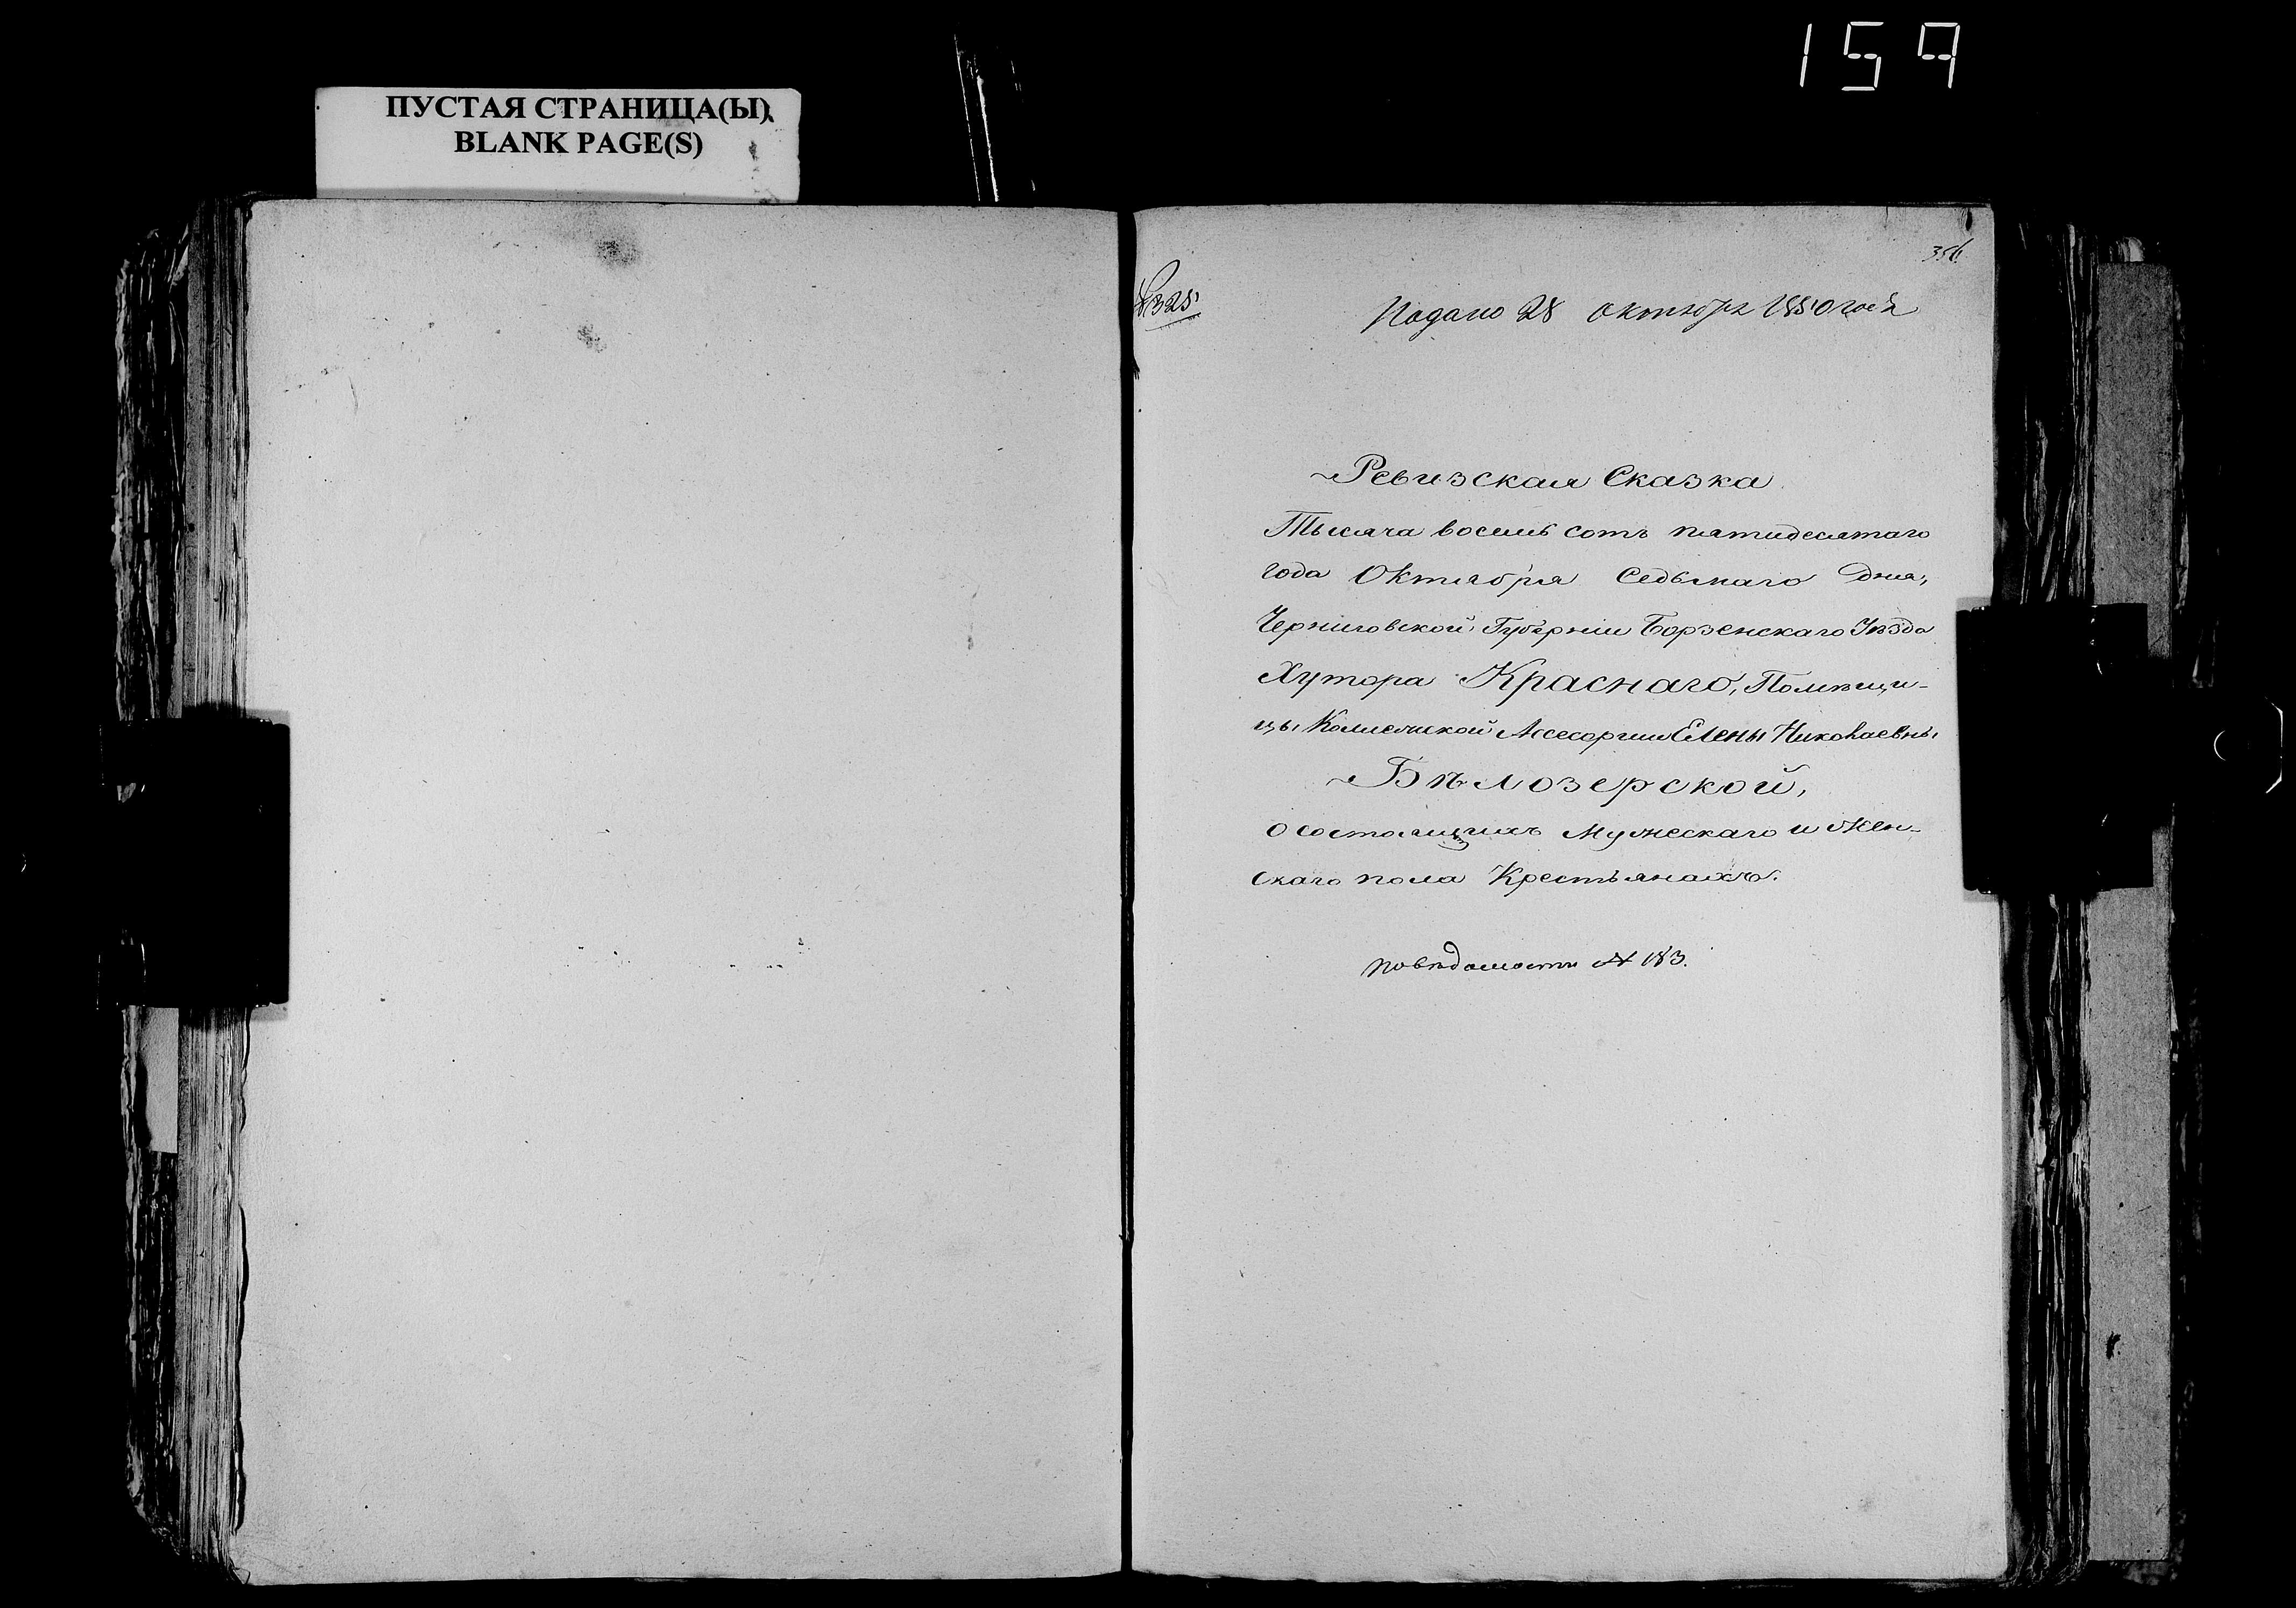 159
ПУСТАЯ СТРАНИЦА(Ы)
BLANK PAGE(S)
356
№ 325
Подано 28 октября 1850 года
Ревизская Сказка
Тысяча восемь сотъ пятидесятаго
года Октября Седьмаго дня,
Черниговской Губерніи Борзенскаго Уѣзда
Хутора Краснаго, Помѣщи-
цы Колежской Ассесорши Елены Николаевны
Бѣлозерской,
о состоящихъ Мужескаго и Жен-
скаго пола Крестьянахъ.
по вѣдомости № 183.